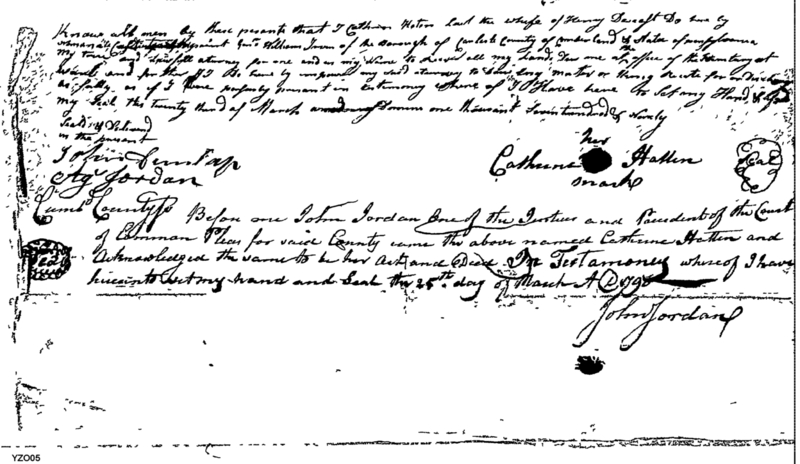 Know all men by these presents that I Catherine Haten last the wife of Henry Do here by
William Irwin of the Borough of Carlisle County of Cumberland & State of pennsylvania
my true and lawfull attorney for me and in my Name to Receive all my lands Due me at the office of the
and further I Do here by impower my said attorney to Doe any mater or thing
as fully as if I Were personly present in testimony where of I Have here to Set my Hand & 
my Seal this twenty third of March Domini one thousand Seven hundred & Ninety
Seal'd & Delivered
in the present
John Dunlap
Jordan
her
Catherine Hatten
mark
Seal
Cumb. County ss Before me John Jordan One of the Justices and President of the Court
of Common Pleas for said County came the above named Catherine Hatten and
Acknowledged the same to be her Act and Deed In Testamoney whereof I have
hereunto set my hand and Seal the 25th day of March A D 1790
Seal
John Jordan
YZO05